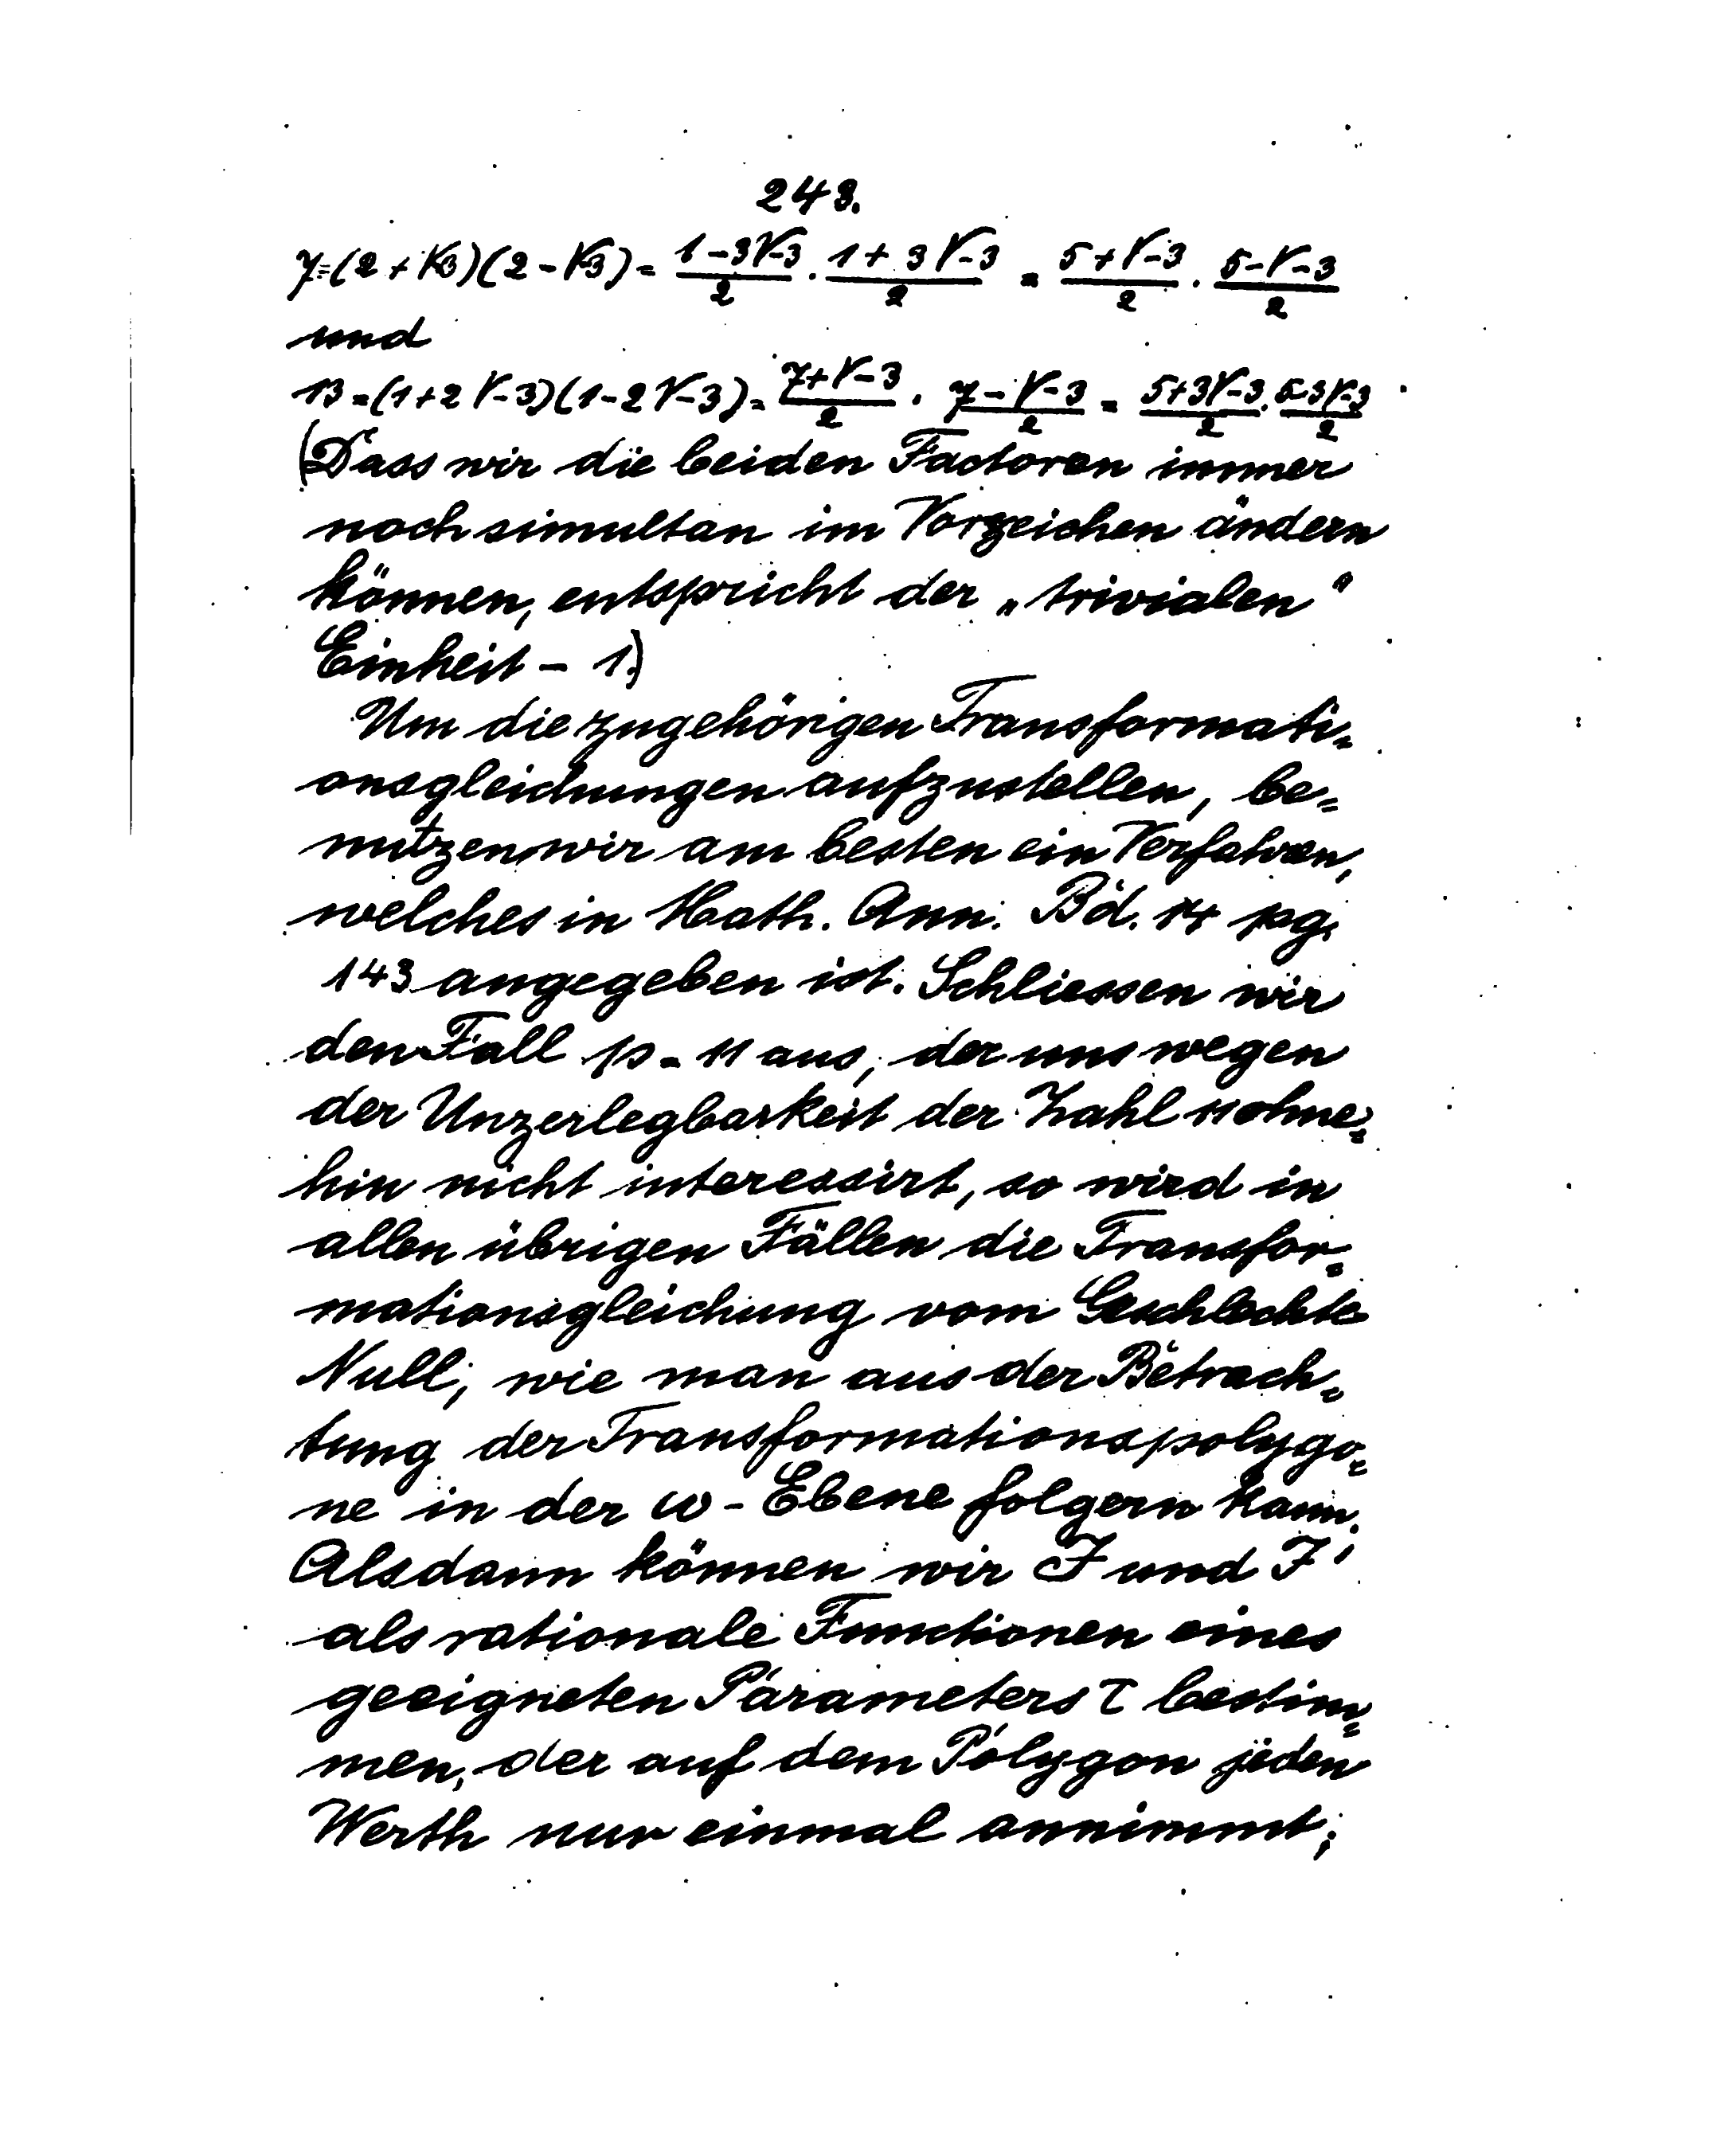 243.
7=(2+√-3)(2-√-3)= (1-3√-3)/2 · (1+3√-3)/2 = (5+√-3)/2 · (5-√-3)/2
und
13=(1+2√-3)(1-2√-3)= (7+√-3)/2 · (7-√-3)/2 = (5+3√-3)/2 · (5-3√-3)/2
(Dass wir die beiden Factoren immer
noch simultan im Vorzeichen ändern
können, entspricht der „trivialen"
Einheit - 1.)
Um die zugehörigen Transformati=
onsgleichungen aufzustellen, be=
nutzen wir am besten ein Verfahren,
welches in Math. Ann. Bd. 14 pag.
143 angegeben ist. Schliessen wir
den Fall p = 11 aus, der uns wegen
der Unzerlegbarkeit der Zahl 11 ohne=
hin nicht interessirt, so wird in
allen übrigen Fällen die Transfor=
mationsgleichung vom Geschlechte
Null, wie man aus der Betrach=
tung der Transformationspolygo=
ne in der ω-Ebene folgern kann.
Alsdann können wir J und J'
als rationale Functionen eines
geeigneten Parameters τ bestim=
men, der auf dem Polygon jeden
Werth nur einmal annimmt;